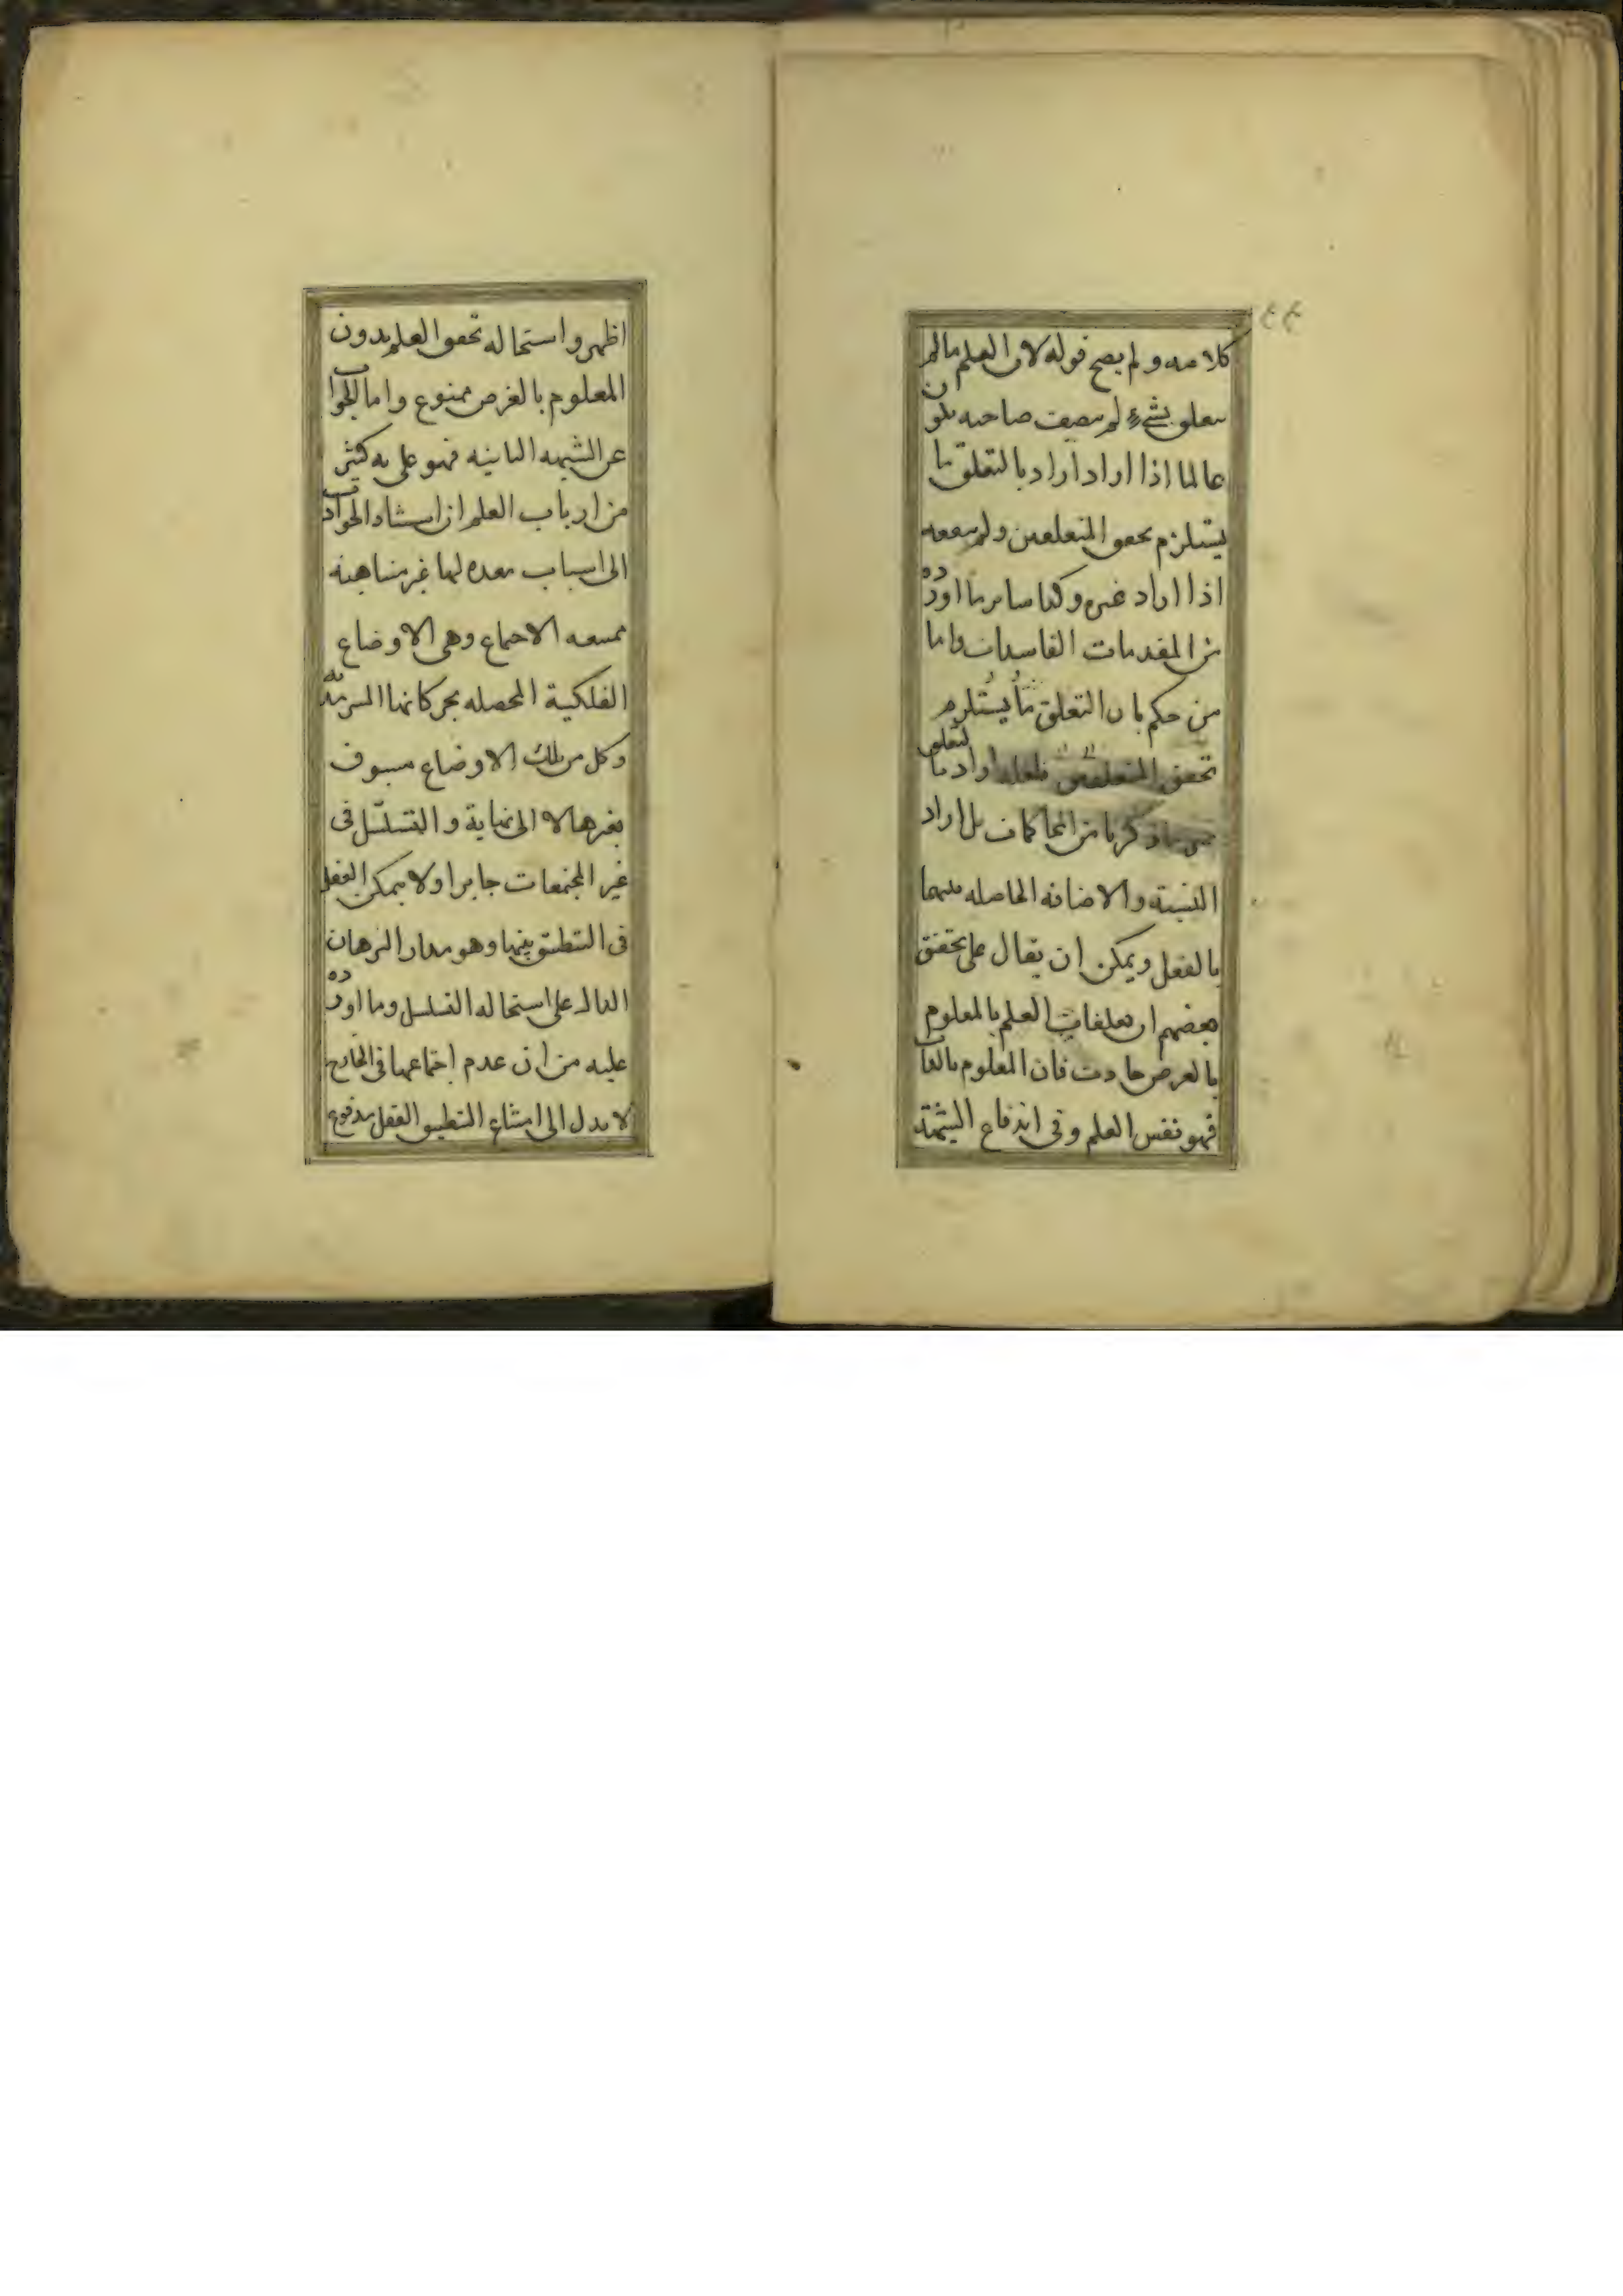 كلامه ولم يصح قوله لان العلم ما لم
يتعلق بشيء لم يتصف صاحبه بكون
عالما اذا اراد اراد بالتعلق ما
يستلزم تحقق المتعلقين ولم ينفعه
اذا اراد غيره وكذا ساير ما اورده
من المقدمات الفاسدات واما
من حكم بان التعلق مما يستلزم
تحقق المتعلقين فلعله اراد بالتعلق
ما ذكرنا من المحاكمات بل اراد
النسبة والاضافه الحاصله بينهما
بالفعل ويمكن ان يقال على تحقق
بعضهم ان تعلقات العلم بالمعلوم
بالعرض حادث فان المعلوم بالذات
فهو نفس العلم وفي اندفاع الشبهة
اظهر واستحاله تحقق العلم بدون
المعلوم بالعرض ممنوع واما الجواب
عن الشبهه الثانيه فهو على به كثير
من ارباب العلم ان استناد الحوادث
الى اسباب معده لها غير متناهية
ممتنعه الاجتماع وهي الاوضاع
الفلكية المحصله بحركاتها السرمدية
وكل من تلك الاوضاع مسبوق
بغيرها لا الى نهاية والتسلسل في
غير المجتمعات جايز اولا يمكن العقل
في التطبيق بينها وهو مدار البرهان
الدال على استحاله التسلسل وما اورده
عليه من ان عدم اجتماعها في الخارج
لا يدل الى امتناع التطبيق العقل مدفوع